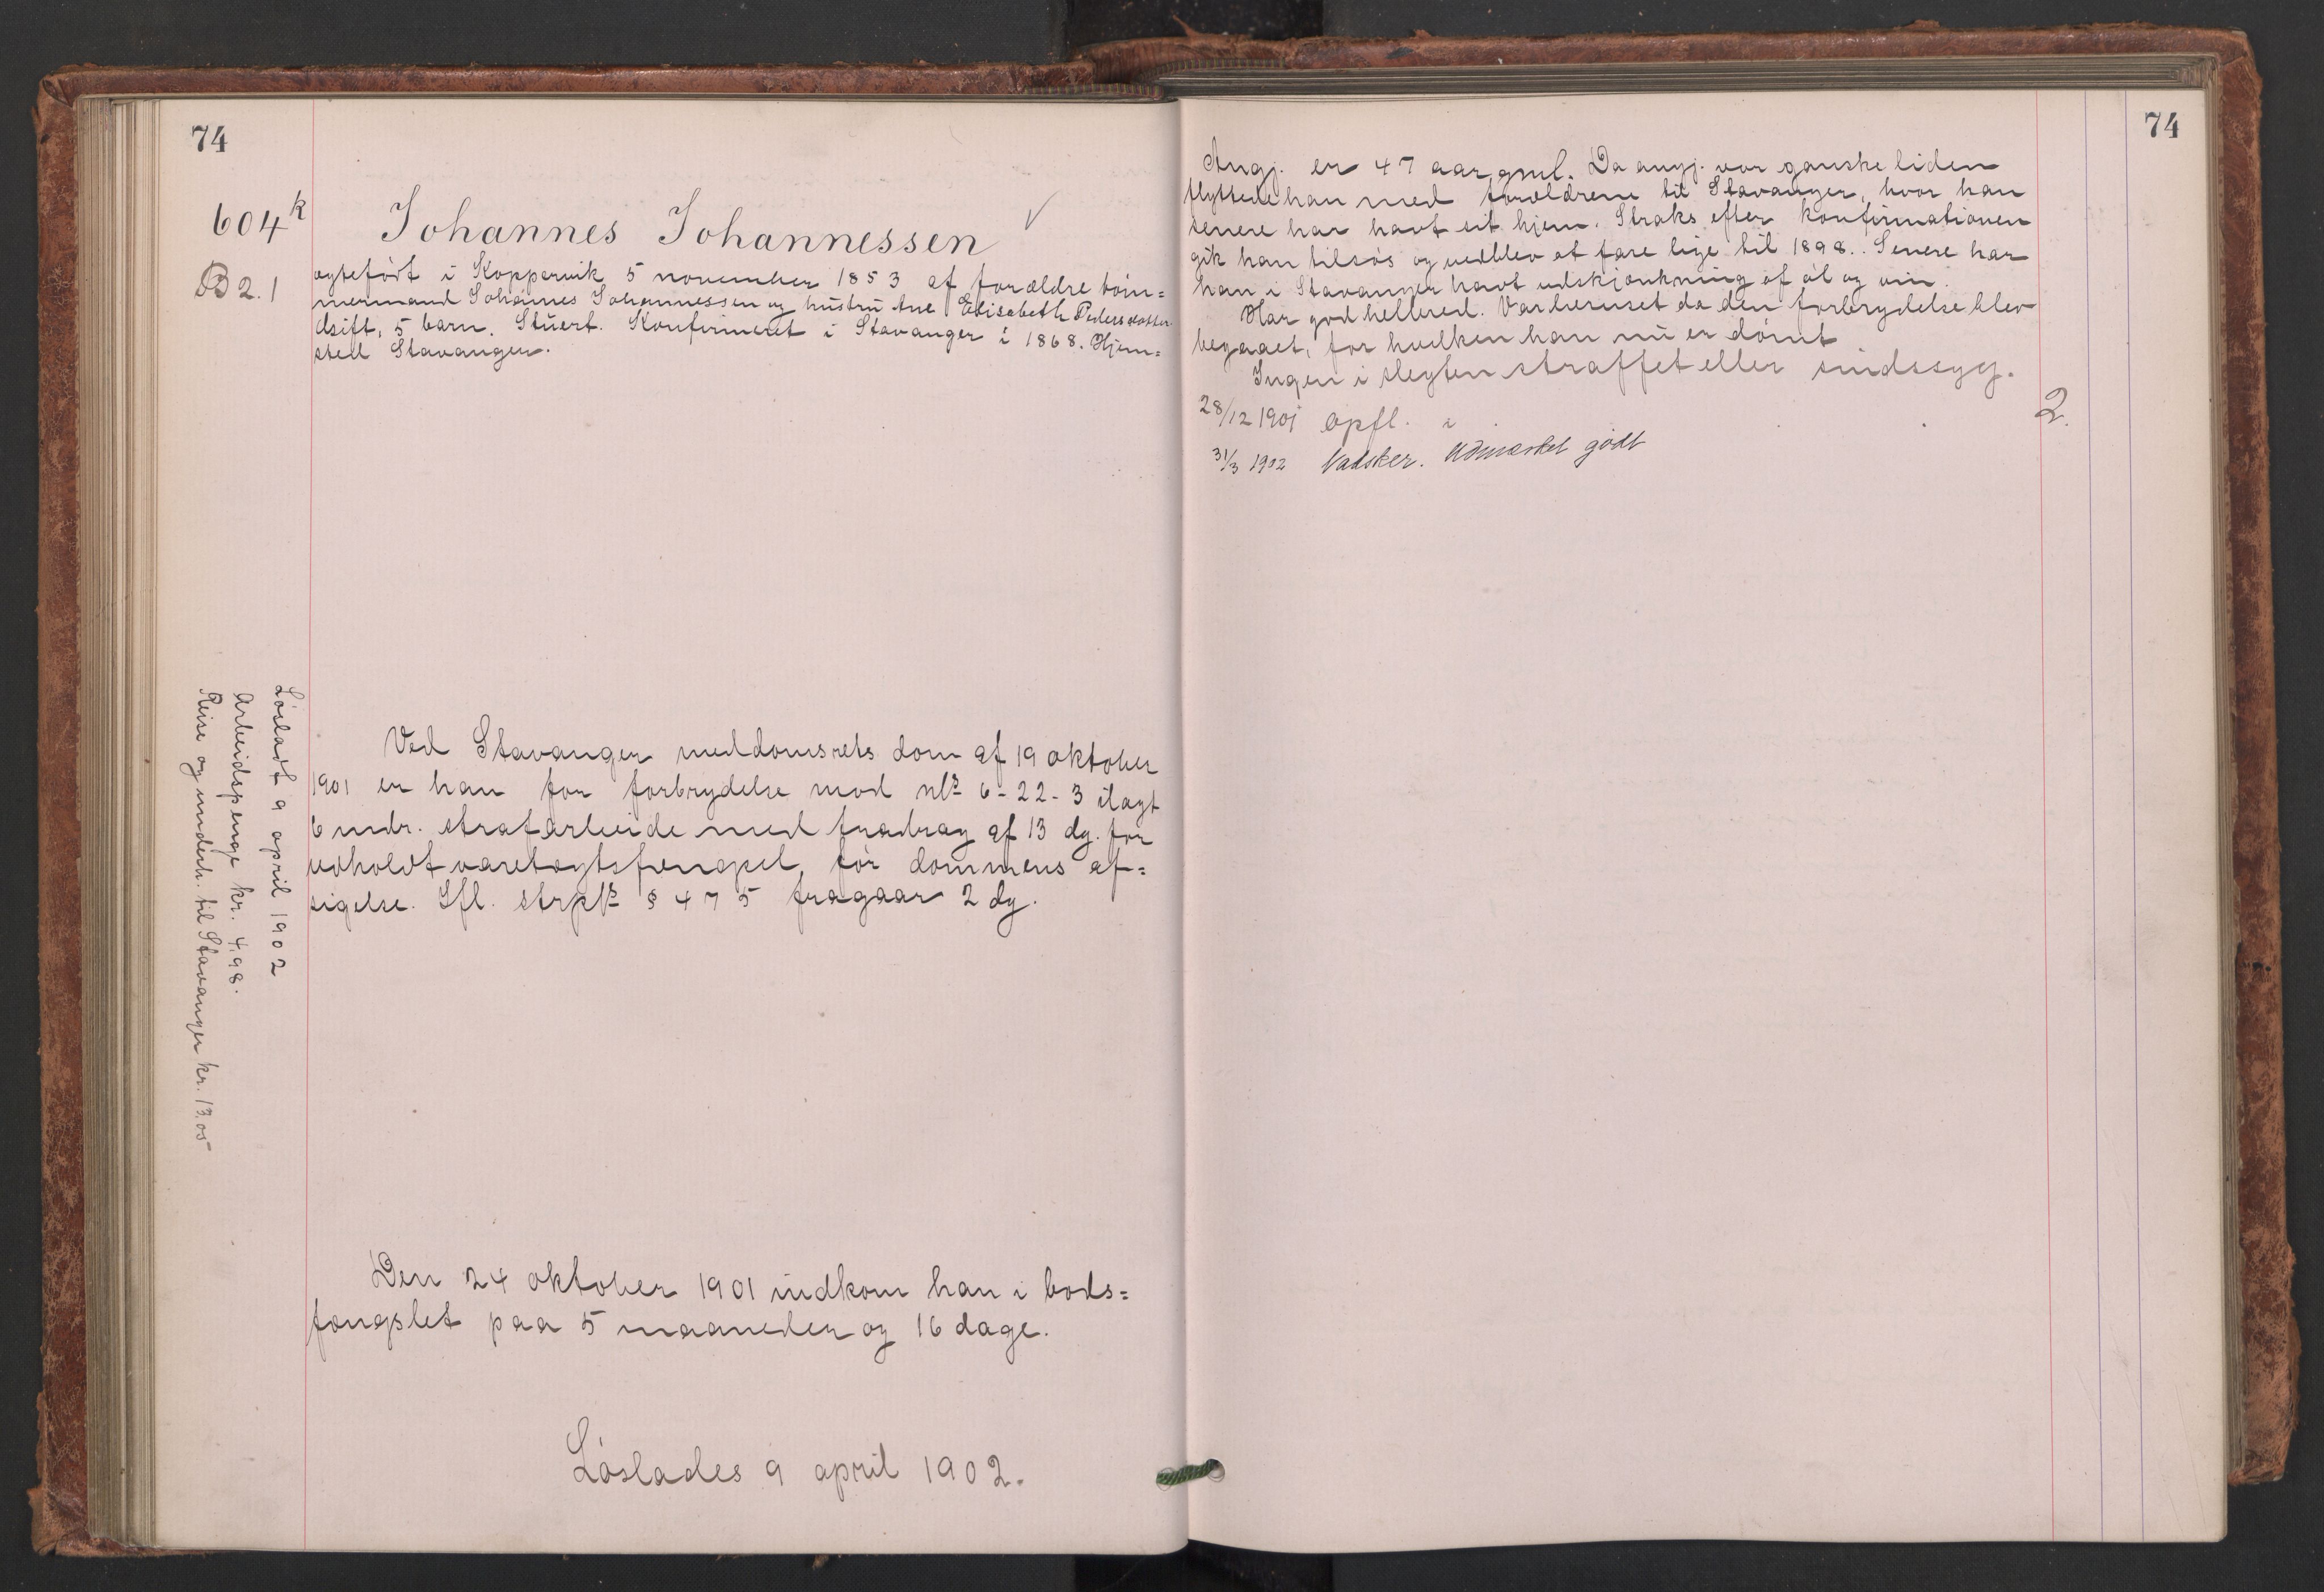 74
604k
B 2.1
Johannes Johannessen
ægtefødt i Koppervik 5 november 1853 af forældre tøm=
mermand Johannes Johannessen og hustru Ane Elisabeth Pedersdatter
Gift, 5 barn. Stuert. Konfirmeret i Stavanger i 1868. Hjem=
sted Stavanger.
Ved Stavanger meddomsrets dom af 19 oktober
1901 er han for forbrydelse mod 6-22-3 ilagt
6 mdr. strafarbeide med fradrag af 13 dg. for
udholdt varetægtsfængsel før dommens af=
sigelse. Ifl. § 475 fragaar 2 dg.
Løsladt 9 april 1902
Arbeidspenge kr. 4,98.
Reise og underh. til Stavanger kr. 13.05
Den 24 oktober 1901 indkom han i bods=
fængslet paa 5 maaneder og 16 dage.
Løslades 9 april 1902.
74
Angj. er 47 aar gml. Da angj. var ganske liden
flyttede han med forældrene til Stavanger, hvor han
senere har havt sit hjem. Straks efter konfirmationen
gik han tilsøs og vedblev at fare lige til 1898. Senere har
han i Stavanger havt udskjænkning af øl og vin.
Har god helbred. Var beruset da den forbrydelse blev
begaaet, for hvilken han nu er dømt
Ingen i slegten straffet eller sindssyg.
28/12 1901 opfl. 2
2.
31/3 1902 Vadsker. Udmærket godt